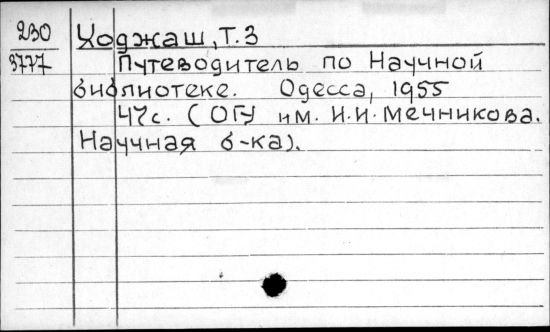 230
3777
Ходжаш, Т. З
Путеводитель по Научной
библиотеке. Одесса, 1955
47с. (ОГУ им. И.И. Мечникова.
Научная б-ка).